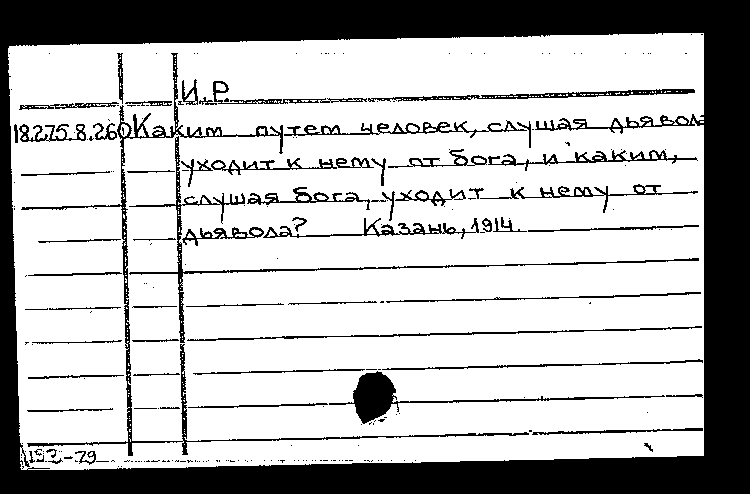 И.Р.
18.275.8.260 Каким путем человек, слушая дьявола
уходит к нему от бога, и каким,
слушая бога, уходит к нему от
дьявола? Казань, 1914.